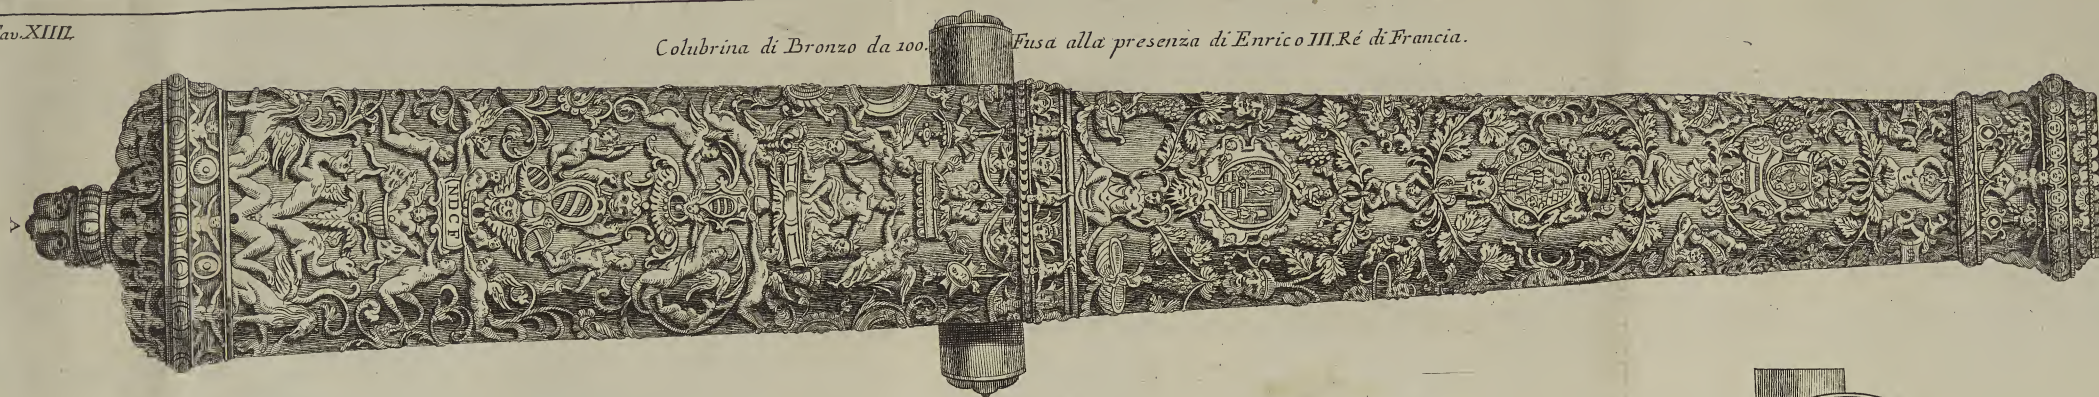 Tav. XIIII.
Colubrina di Bronzo da 100. Fusa alla presenza di Enrico III. Ré di Francia.
A
NDCF